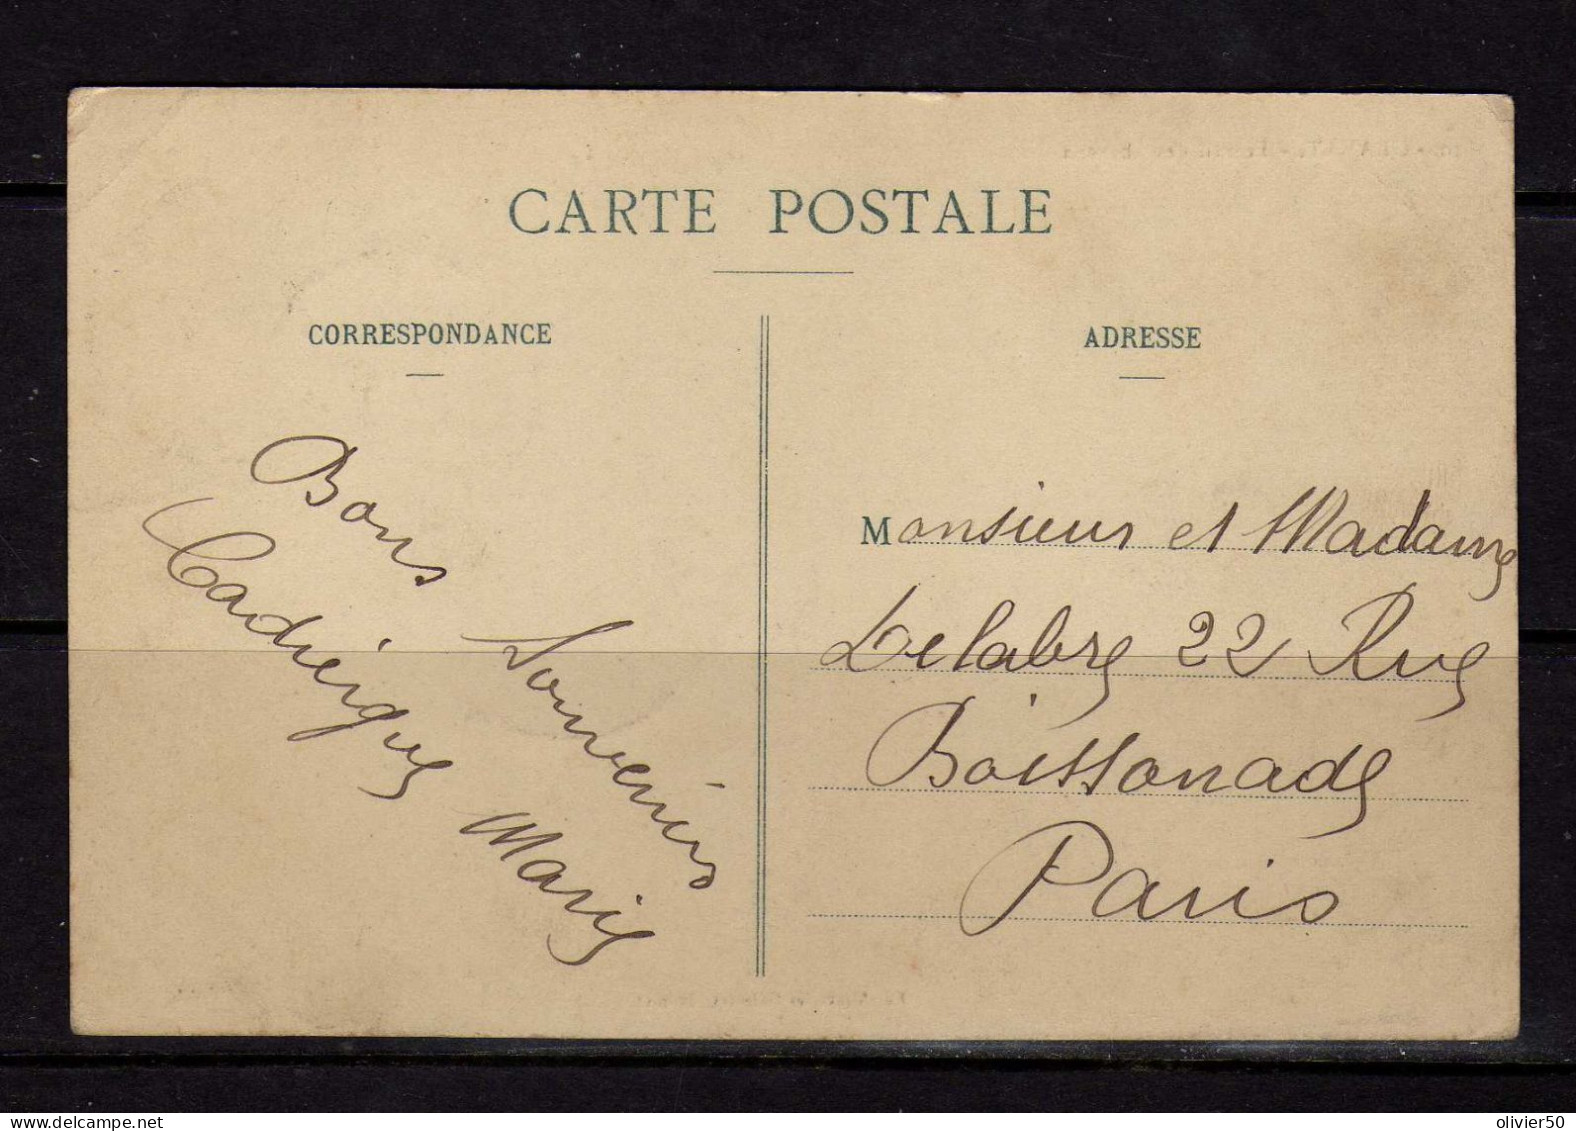 CARTE POSTALE
CORRESPONDANCE
ADRESSE
Bons Souvenirs
Cadièrgues Marie
Monsieur et Madame
Delabre 22 Rue
Boissonade
Paris
olivier50